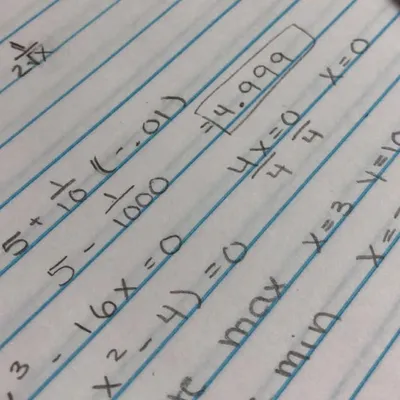 1/(2√x)
5 + 1/10 (-.01)
5 - 1/1000 = 4.999
³ - 16x = 0 4x/4 = 0/4 x = 0
x² - 4) = 0
max x = 3 y = 10
min x =